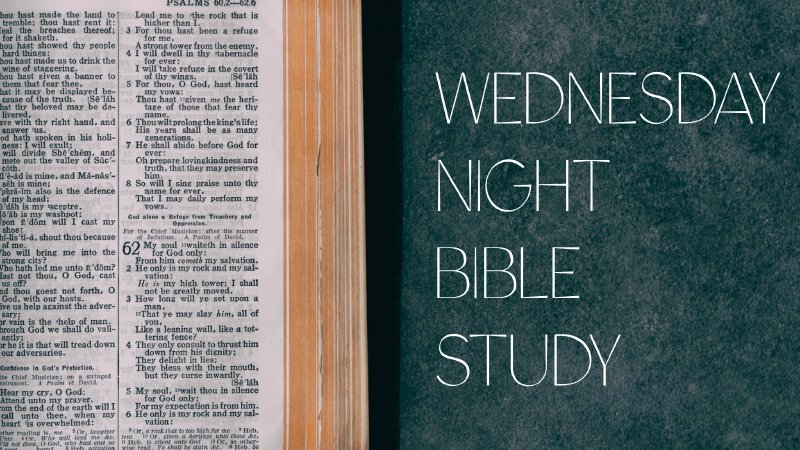 PSALMS 60.2—62.6
hou hast made the land to
tremble; thou hast rent it:
eal the breaches thereof;
for it shaketh.
hou hast showed thy people
hard things:
hou hast made us to drink the
wine of staggering.
hou hast given a banner to
them that fear thee,
hat it may be displayed be-
cause of the truth. [Sē´läh
hat thy beloved may be de-
livered,
ave with thy right hand, and
answer us.
od hath spoken in his holi-
ness: I will exult;
will divide Shē´chĕm, and
mete out the valley of Sŭc´-
cŏth.
is mine, and Mȧ-năs´-
sĕh is mine;
phrȧ-im also is the defence
of my head;
is my sceptre.
is my washpot;
pon Ē´dŏm will I cast my
shoe:
shout thou because
of me.
ho will bring me into the
strong city?
Who hath led me unto Ē´dŏm?
ast not thou, O God, cast
us off?
nd thou goest not forth, O
God, with our hosts.
ive us help against the adver-
sary;
or vain is the help of man.
hrough God we shall do vali-
antly;
or he it is that will tread down
our adversaries.
Confidence in God's Protection.
the Chief Musician; on a stringed
instrument. A Psalm of David.
Hear my cry, O God;
Attend unto my prayer.
rom the end of the earth will I
call unto thee, when my
heart is overwhelmed:
Lead me to the rock that is
higher than I.
3 For thou hast been a refuge
for me,
A strong tower from the enemy.
4 I will dwell in thy tabernacle
for ever:
I will take refuge in the covert
of thy wings. [Sē´läh
5 For thou, O God, hast heard
my vows:
Thou hast given me the heri-
tage of those that fear thy
name.
6 Thou wilt prolong the king's life;
His years shall be as many
generations.
7 He shall abide before God for
ever:
Oh prepare lovingkindness and
truth, that they may preserve
him.
8 So will I sing praise unto thy
name for ever,
That I may daily perform my
vows.
God alone a Refuge from Treachery and
Oppression.
For the Chief Musician; after the manner
of Jeduthun. A Psalm of David.
62 My soul waiteth in silence
for God only:
From him cometh my salvation.
2 He only is my rock and my sal-
vation:
He is my high tower; I shall
not be greatly moved.
3 How long will ye set upon a
man,
That ye may slay him, all of
you,
Like a leaning wall, like a tot-
tering fence?
4 They only consult to thrust him
down from his dignity;
They delight in lies;
They bless with their mouth,
but they curse inwardly.
[Sē´läh
5 My soul, wait thou in silence
for God only;
For my expectation is from him.
6 He only is my rock and my sal-
vation:
WEDNESDAY
NIGHT
BIBLE
STUDY